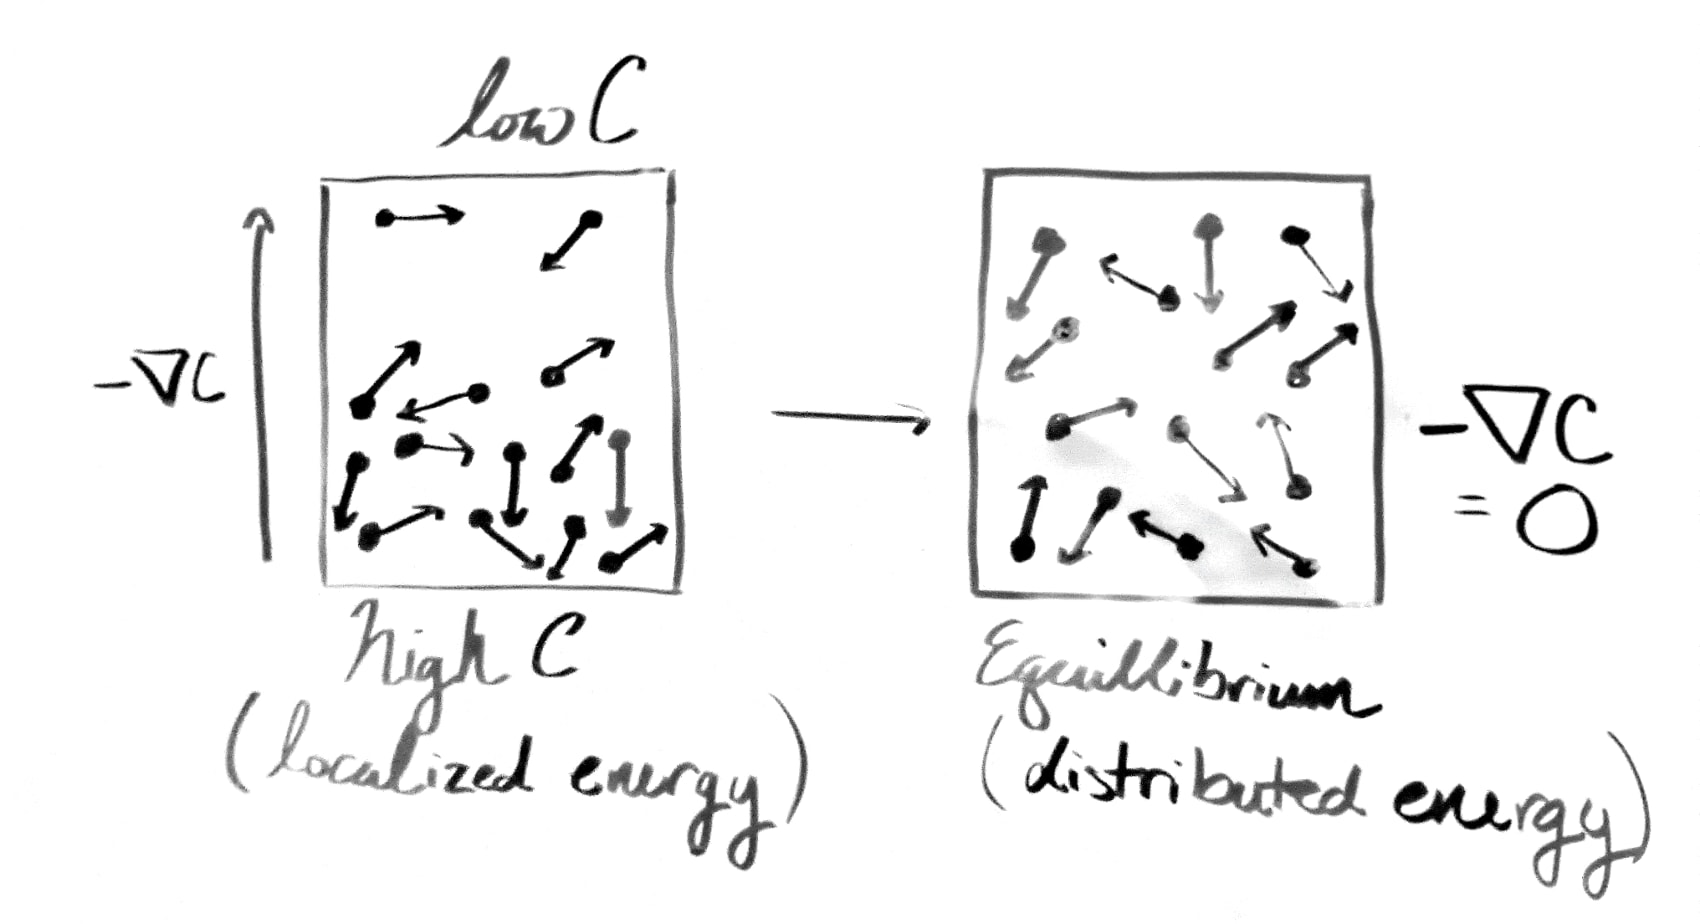 low C
-∇C
high C
(localized energy)
-∇C
= 0
Equillibrium
(distributed energy)